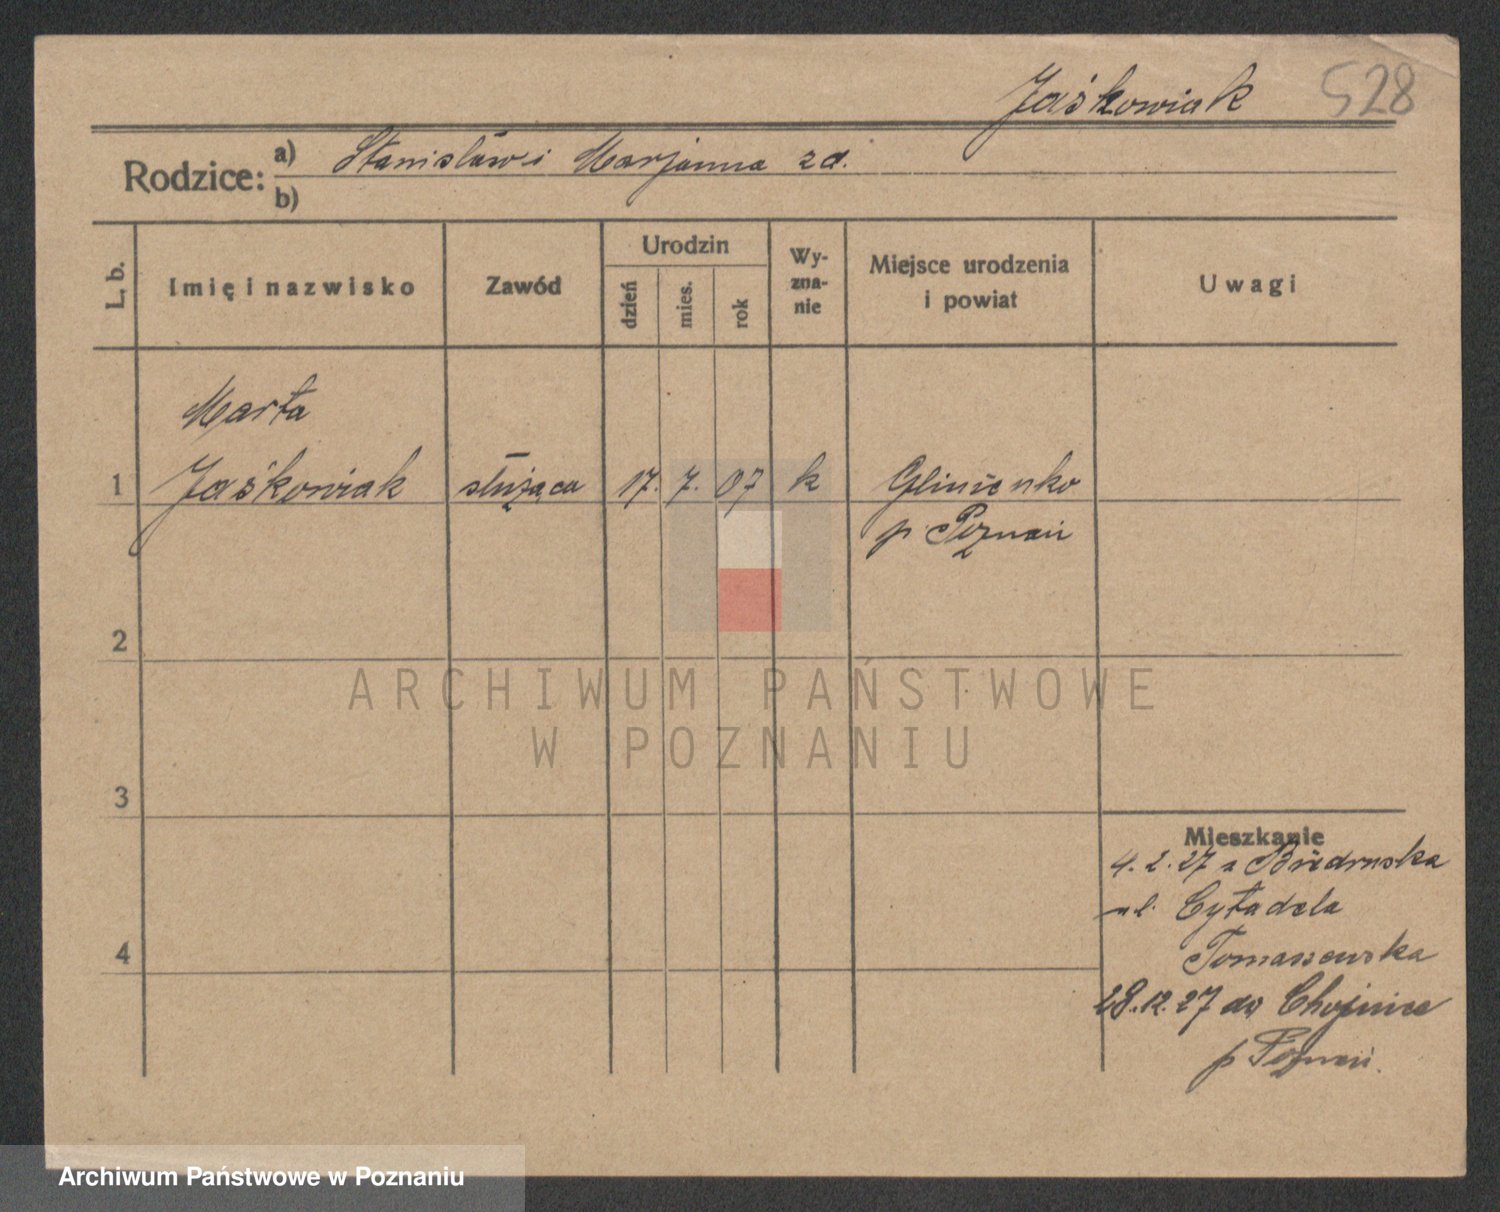 Jaśkowiak 528
Rodzice: a) Stanisław i Marjanna zd.
b)
L. b. Imię i nazwisko Zawód Urodzin dzień mies. rok Wy-zna-nie Miejsce urodzenia i powiat Uwagi
Marta
1 Jaśkowiak służąca 17. 7. 07 k Glinienko
p. Poznań
2
ARCHIWUM PAŃSTWOWE
W POZNANIU
3
Mieszkanie
4. 2. 27 z Biedruska
ul. Cytadela
4 Tomaszewska
28. 12. 27 do Chojnice
p Poznań.
Archiwum Państwowe w Poznaniu